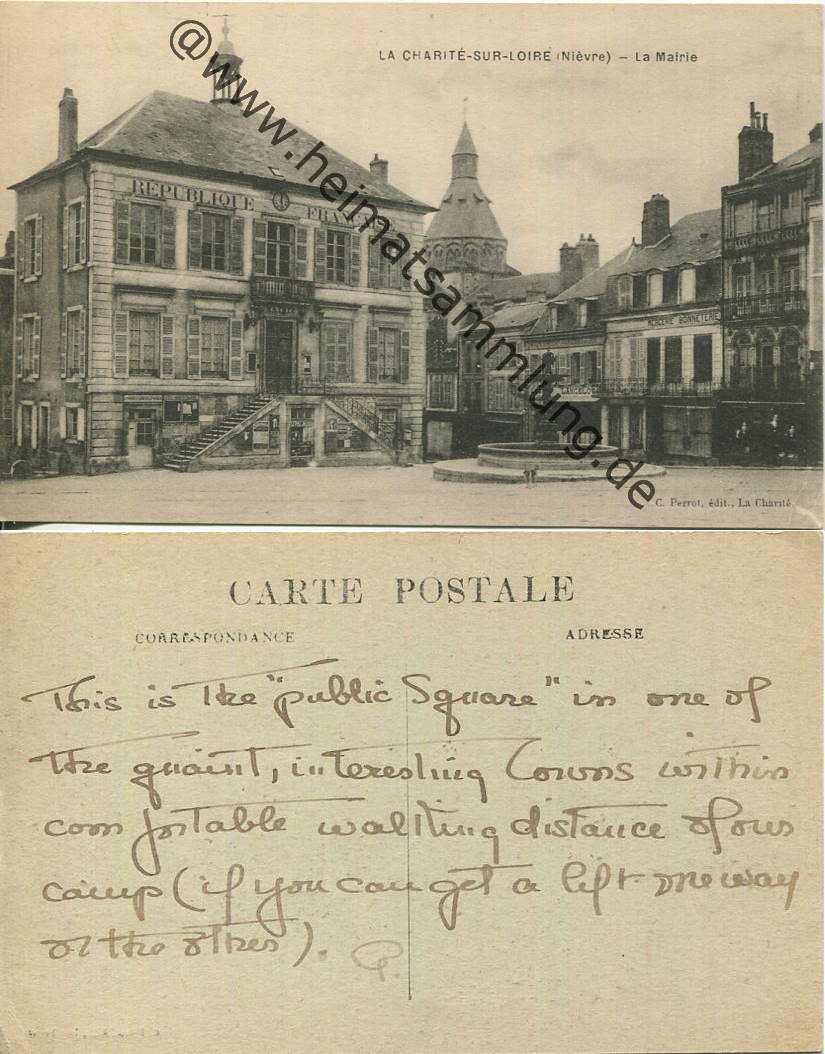 LA CHARITÉ-SUR-LOIRE (Nièvre) – La Mairie
RÉPUBLIQUE FRANÇAISE
MAIRIE
MERCERIE BONNETERIE
@www.heimatsammlung.de
C. Perrot, édit., La Charité
CARTE POSTALE
CORRESPONDANCE
ADRESSE
This is the "public Square" in one of
the quaint, interesting towns within
comfortable walking distance of our
camp (if you can get a lift one way
or the other). P.